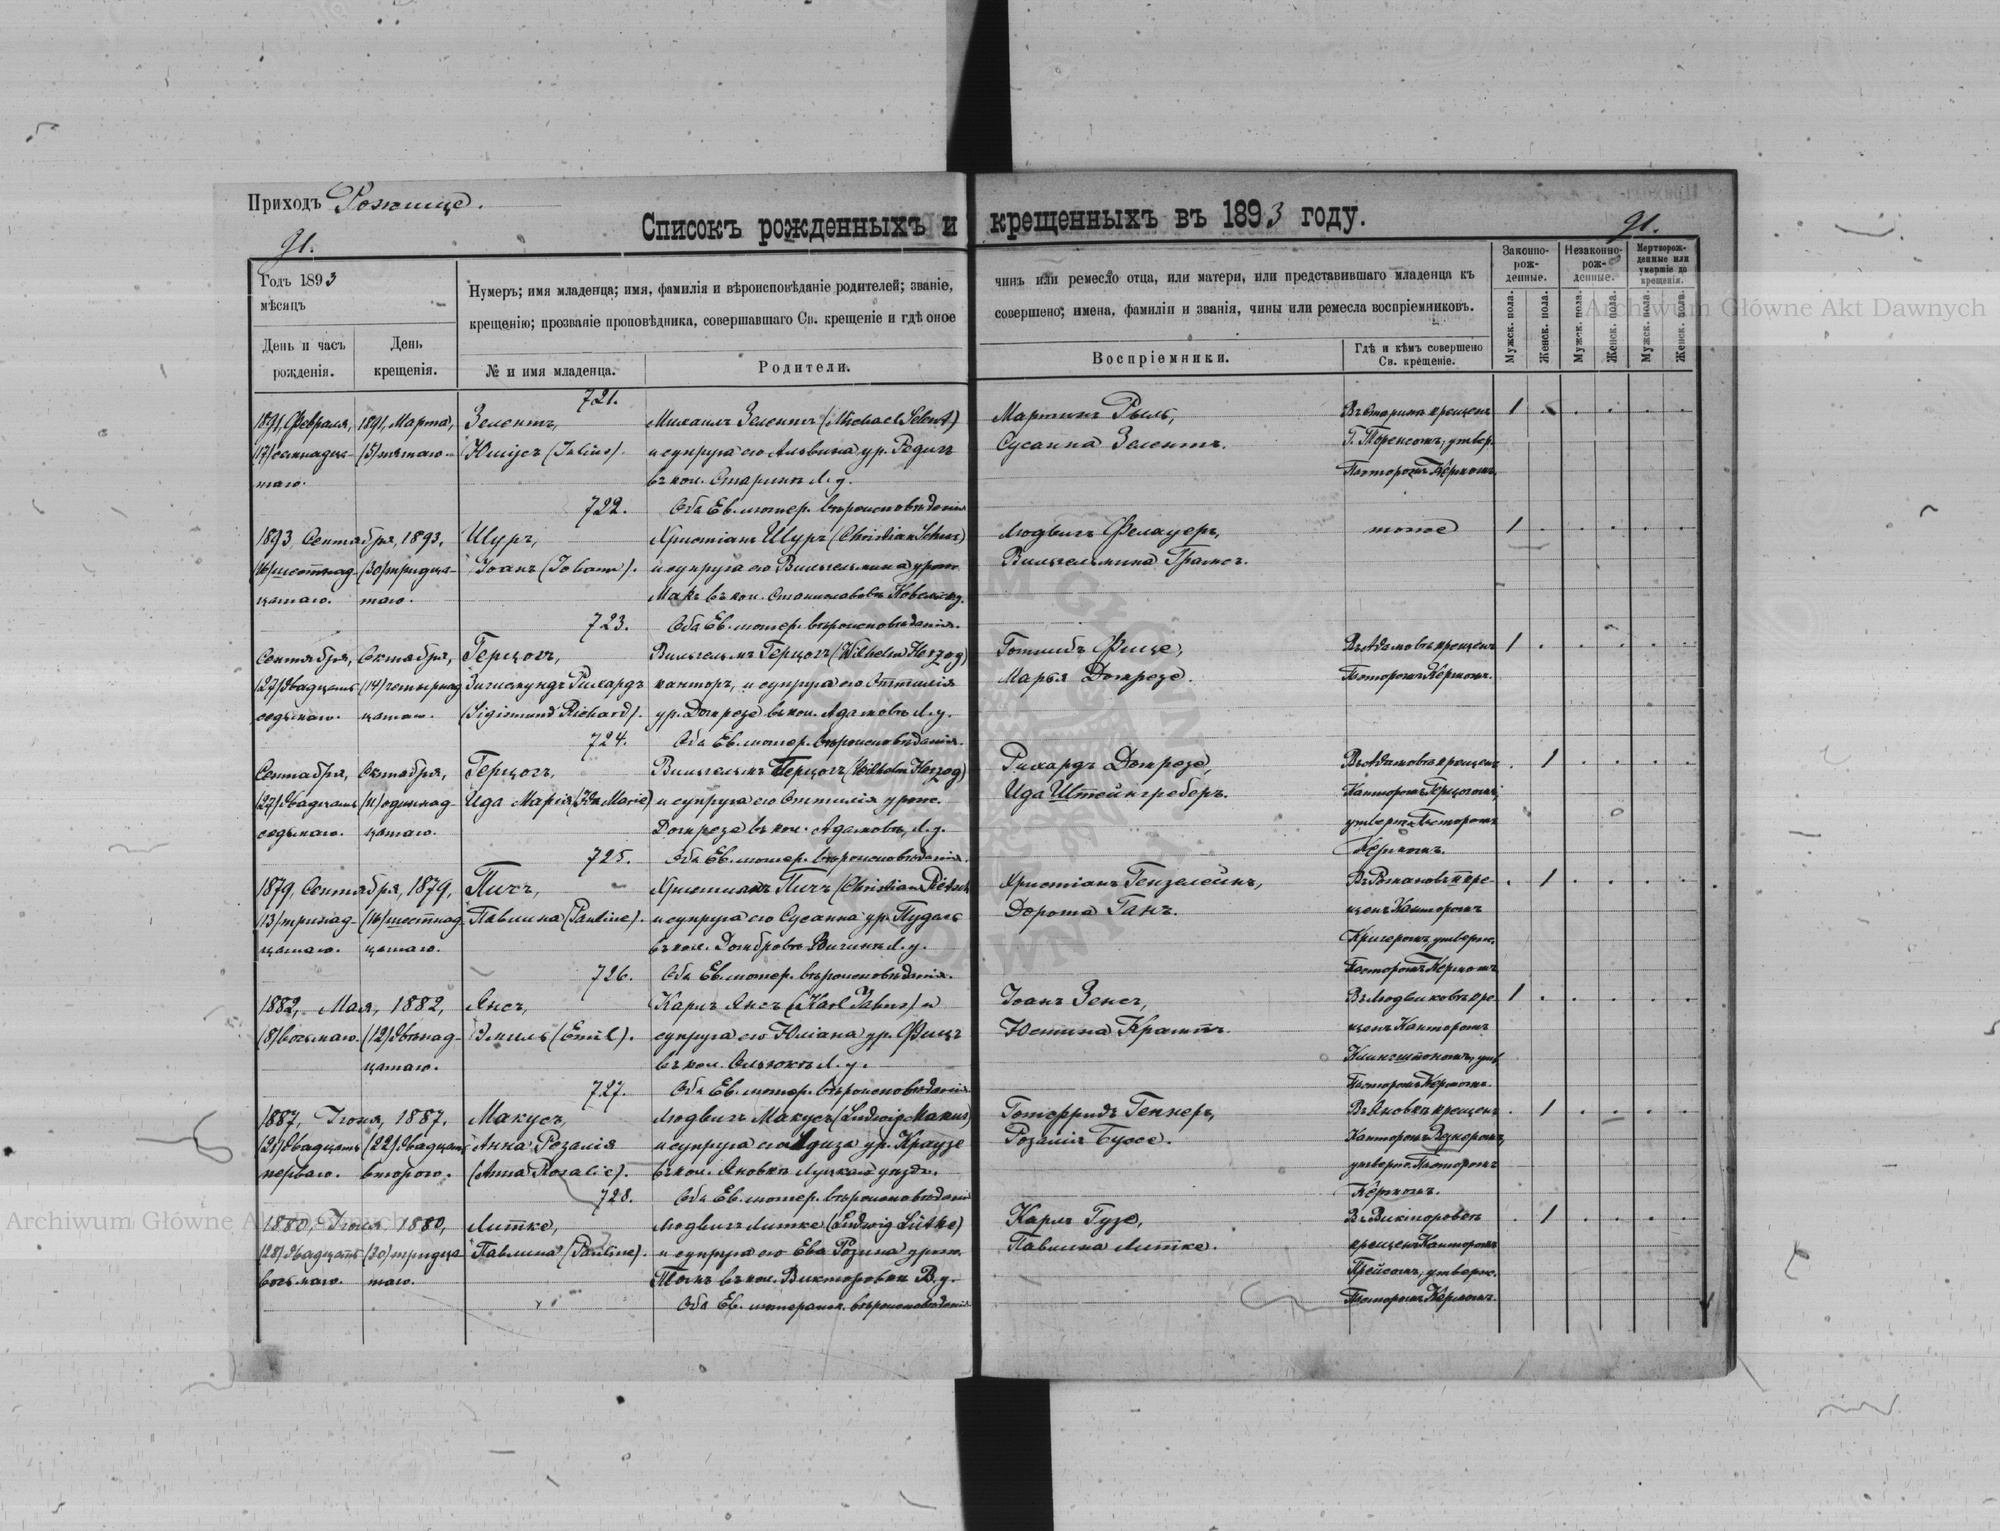 Приходъ Рожище.
Списокъ рожденныхъ и крещенныхъ въ 1893 году.
91.
91.
Годъ 1893
мѣсяцъ
День и часъ рожденія.
День крещенія.
Нумеръ; имя младенца; имя, фамилія и вѣроисповѣданіе родителей; званіе,
чинъ или ремесло отца, или матери, или представившаго младенца къ
крещенію; прозваніе проповѣдника, совершавшаго Св. крещеніе и гдѣ оное
совершено; имена, фамиліи и званія, чины или ремесла воспріемниковъ.
№ и имя младенца.
Родители.
Воспріемники.
Гдѣ и кѣмъ совершено
Св. крещеніе.
Законно-
рож-
денные.
Незаконно-
рож-
денные.
Мертворож-
денные или
умершіе до
крещенія.
Мужск. пола.
Женск. пола.
Мужск. пола.
Женск. пола.
Мужск. пола.
Женск. пола.
721.
1891, Февраля, 1891, Марта, Зелентъ, Михаилъ Зелентъ (Michael Selent) Мартинъ Рыль, Въ крещенъ 1
(17) семнадца- (5) пятаго Юліусъ (Julius). и супруга его Альвина ур. Редигъ Сусанна Зелентъ.
таго. въ кол. Л. у. Пасторомъ Кёрномъ
722. Оба Ев. лютер. вѣроисповѣданія
1893, Сентября, 1893, Шуръ, Христіанъ Шуръ (Christian Schur) Людвигъ тоже 1
(16) шестнад- (30) тридца- Іоанъ (Johann). и супруга его Вильгельмина урож. Вильгельмина
цатаго. таго. въ кол. Станиславовъ
723. Оба Ев. лютер. вѣроисповѣданія.
Сентября, Октября, Герцогъ, Вильгельмъ Герцогъ (Wilhelm Herzog) Готлибъ Фице, Въ Адамовъ крещенъ 1
(27) двадцать (14) четырнад Зигисмундъ Рихардъ канторъ, и супруга его Оттилія Марья Домрезе. Пасторомъ Кёрномъ.
седьмаго. цатаго. (Sigismund Richard). ур. Домрезе въ кол. Адамовъ Л. у.
724. Оба Ев. лютер. вѣроисповѣданія.
Сентября, Октября, Герцогъ, Вильгельмъ Герцогъ (Wilhelm Herzog) Рихардъ Домрезе, Въ Адамовъ крещенъ 1
(27) двадцать (11) одиннад- Ида Марія (Ida Marie) и супруга его Оттилія урож. Ида Штейнгреберъ. Канторомъ Герцогомъ,
седьмаго. цатаго. Домрезе въ кол. Адамовъ, Л. у. утвержд. Пасторомъ
725. Оба Ев. лютер. вѣроисповѣданія. Кёрномъ.
1879, Сентября, 1879, Пичъ, Христіанъ Пичъ (Christian Pietsch Христіанъ Гензелейнъ, Въ Романовъ кре- 1
(13) тринад- (16) шестнад Павлина (Pauline). и супруга его Сусанна ур. Дорота Ганъ. щенъ Канторомъ
цатаго. цатаго. въ кол. Л. у. Кригеромъ, утвержд.
726. Оба Ев. лютер. вѣроисповѣданія. Пасторомъ Кёрномъ
1882, Мая, 1882, Янсъ, Карлъ Янсъ (Karl Jahns) и Іоанъ Зенсъ, Въ Людвиковъ кре- 1
(8) восьмаго. (12) двѣнад- Эмиль (Emil). супруга его Юліана ур. Фицъ Юстина щенъ Канторомъ
цатаго. въ кол. Л. у.
727. Оба Ев. лютер. вѣроисповѣданія Пасторомъ Кёрномъ.
1887, Іюня, 1887, Макусъ, Людвигъ Макусъ (Ludwig Makus) Готфридъ Геннеръ, Въ Яновкѣ крещена 1
(21) двадцать (22) двадцать Анна Розалія и супруга его ур. Краузе Розалія Буссе. Канторомъ
перваго. второго. (Anna Rosalie). въ кол. Яновка Луцкаго уѣзда. утвержд. Пасторомъ
728. Оба Ев. лютер. вѣроисповѣданія Кёрномъ.
1880, Іюня, 1880, Литке, Людвигъ Литке (Ludwig Lütke) Карлъ Гузе, Въ Викторовкѣ 1
(28) двадцать (30) тридца Павлина (Pauline). и супруга его Ева Розина урож. Павлина Литке. крещена Канторомъ
восьмаго. таго. въ кол. Викторовка В. у. утвержд.
Оба Ев. лютеранск. вѣроисповѣданія Пасторомъ Кёрномъ.
Archiwum Główne Akt Dawnych
Archiwum Główne Akt Dawnych